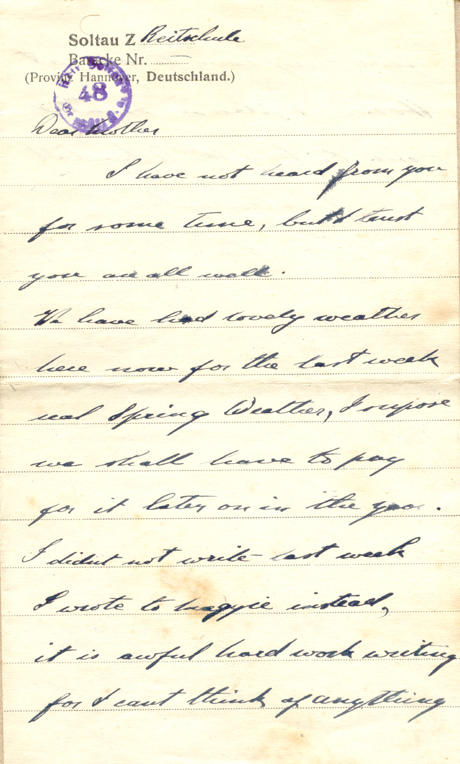 Soltau Z Reitschule
Baracke Nr.
(Provinz Hannover, Deutschland.)
48
Dear Mother
I have not heard from you
for some time, but I trust
you are all well.
We have had lovely weather
here now for the last week
real Spring Weather, I supose
we shall have to pay
for it later on in the year.
I didnt not write last week
I wrote to Maggie instead,
it is awful hard work writing
for I cant think of anything